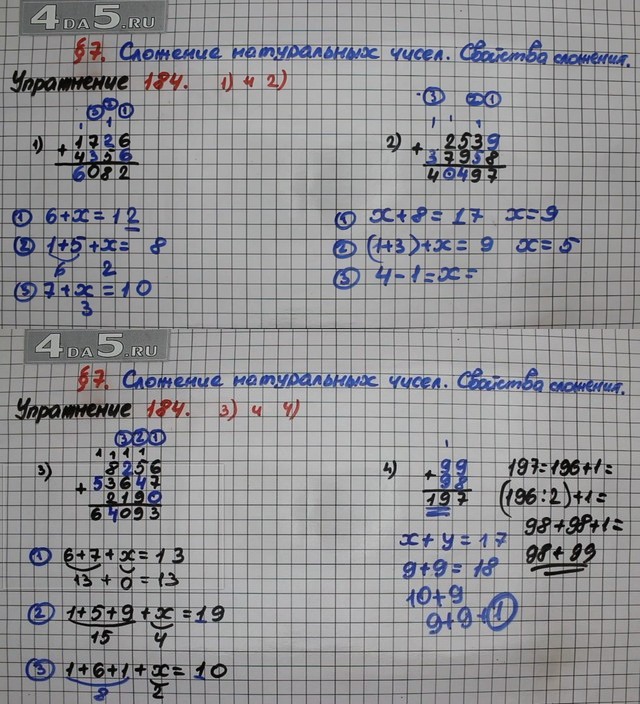 4DA5.RU
§7. Сложение натуральных чисел. Свойства сложения.
Упражнение 184. 1) и 2)
③ ② ①
1 1
1) + 1726
4356
6082
① 6+x=12
② 1+5+x= 8
6 2
③ 7+x=10
3
③ ② ①
1 1 1
2) + 2539
37958
40497
① x+8=17 x=9
② (1+3)+x=9 x=5
③ 4-1=x=
4DA5.RU
§7. Сложение натуральных чисел. Свойства сложения.
Упражнение 184. 3) и 4)
③②①
1 1 1 1
3) 8256
+ 53647
2190
64093
① 6+7+x=13
13+0=13
② 1+5+9+x=19
15 4
③ 1+6+1+x=10
8 2
1
4) + 99
98
197
x+y=17
9+9=18
10+9
9+9+①
197=196+1=
(196:2)+1=
98+98+1=
98+99